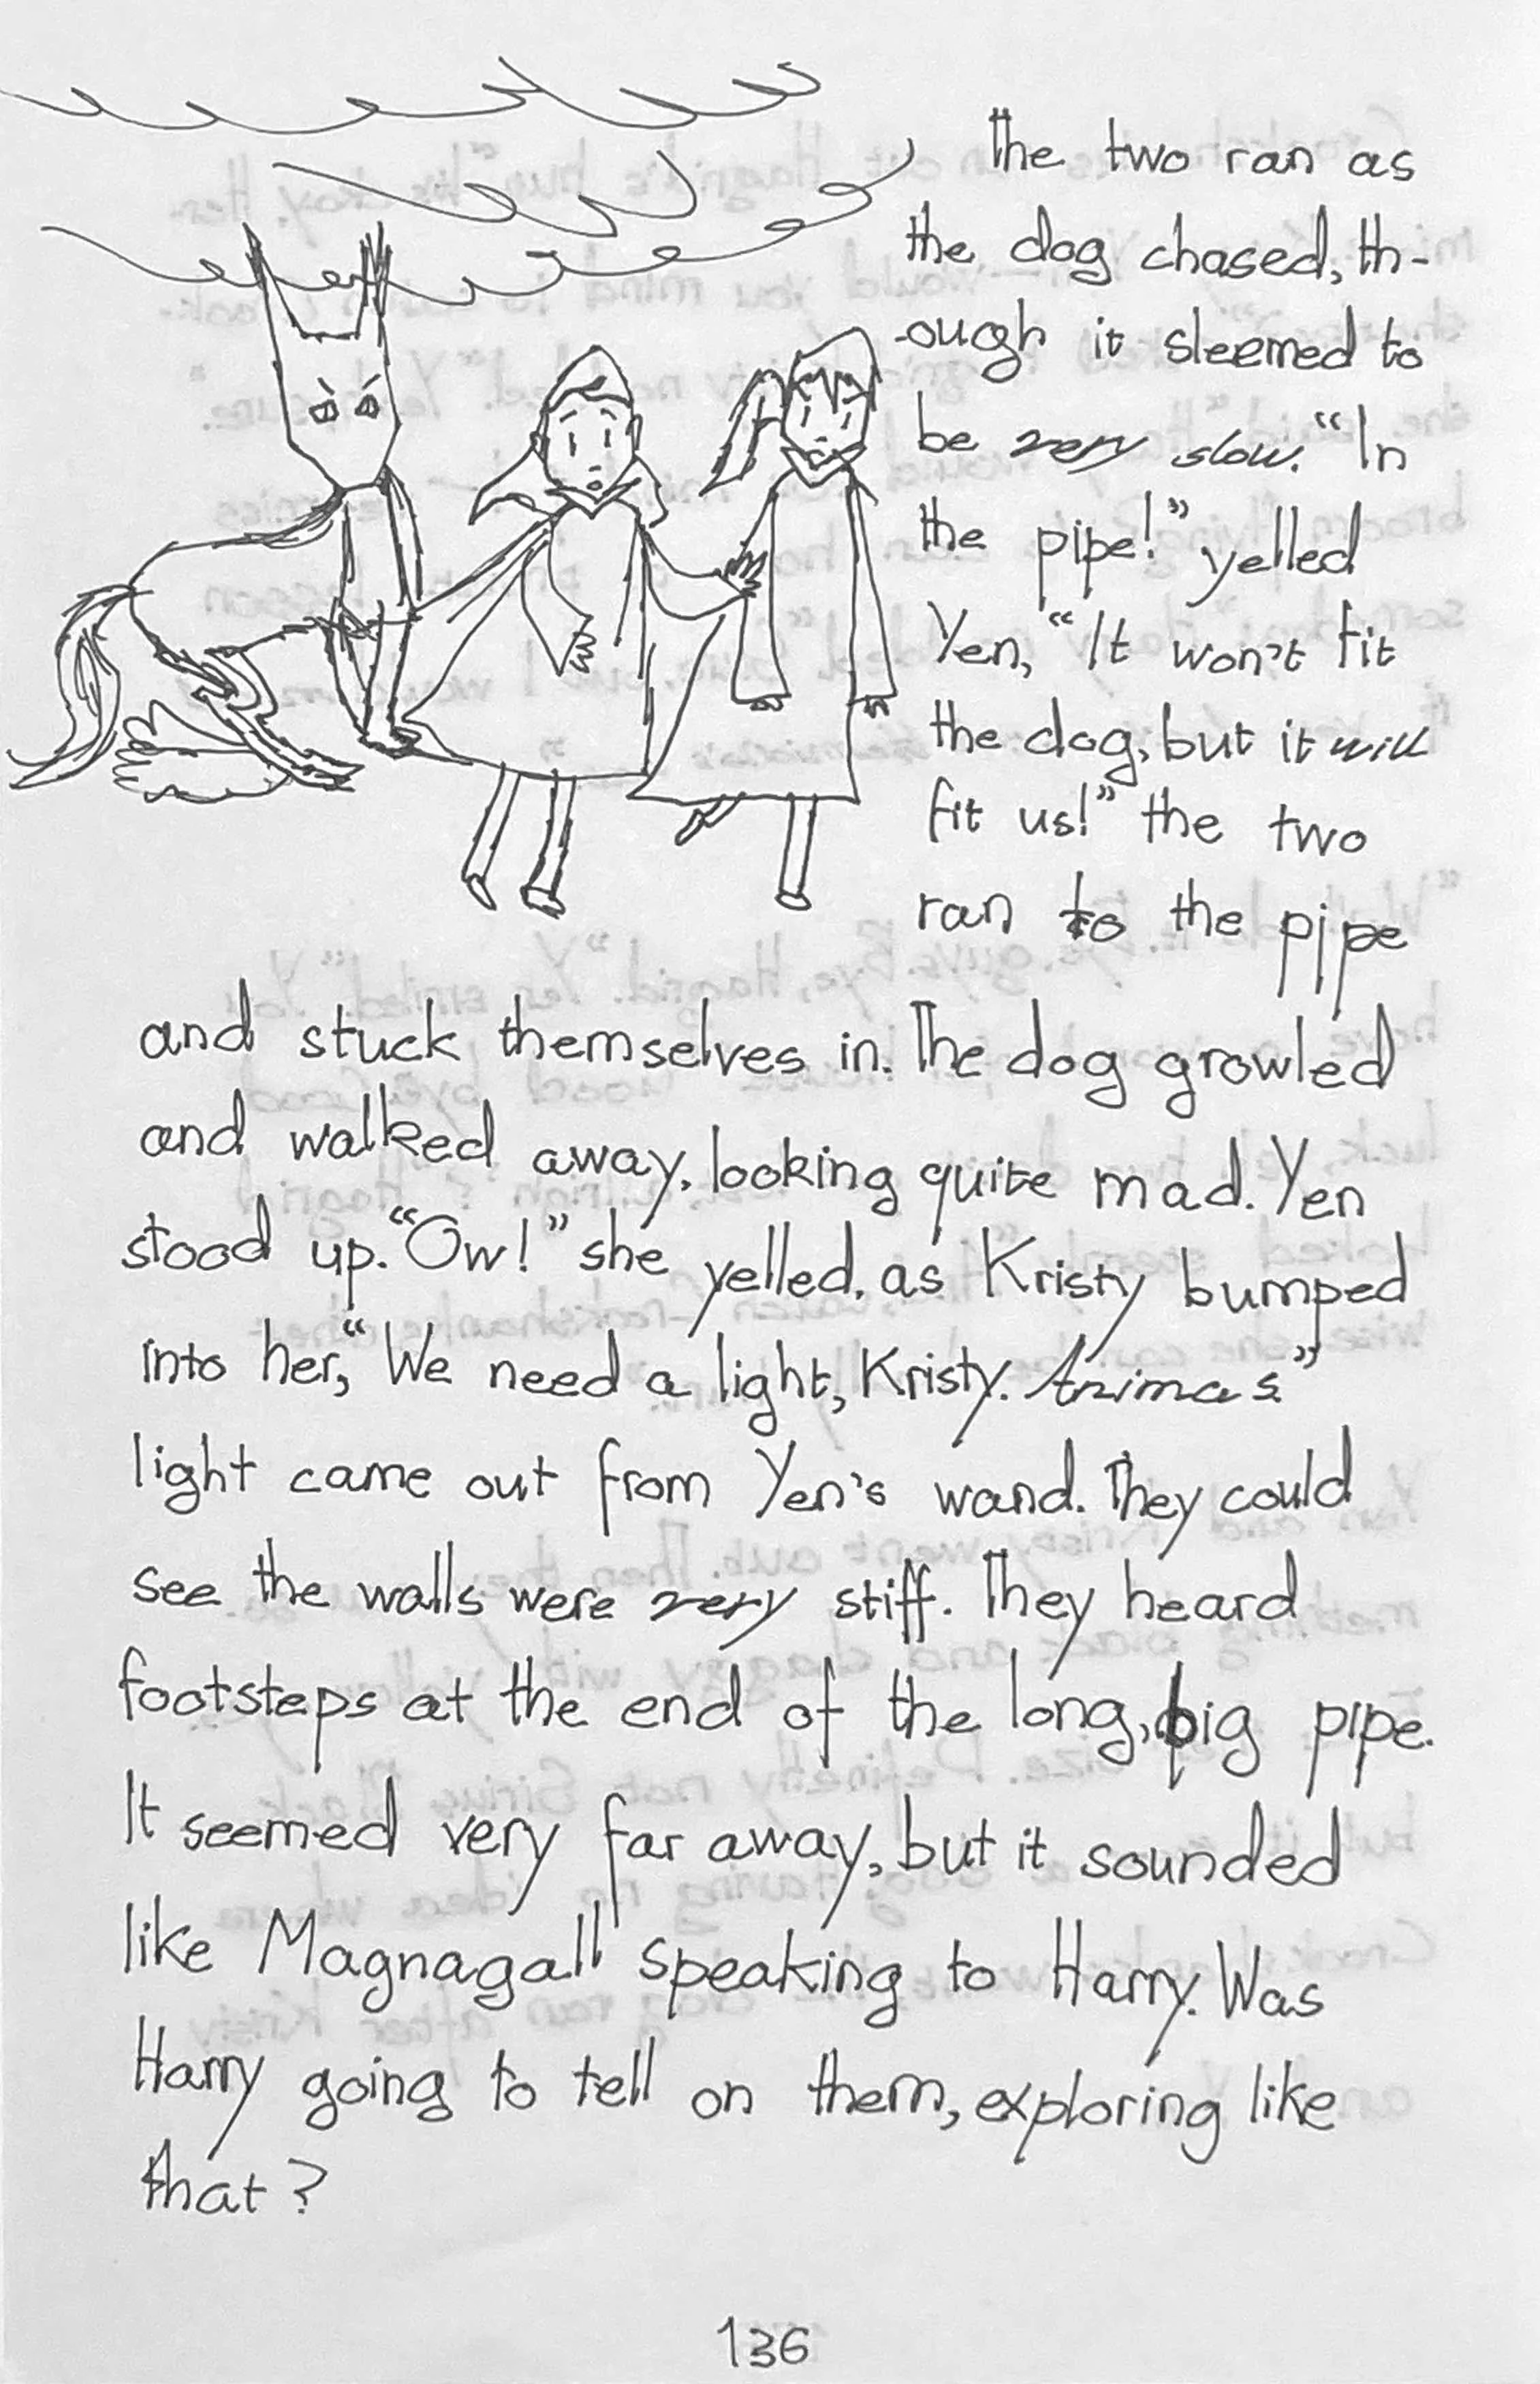 The two ran as
the dog chased, th-
-ough it sleemed to
be very slow. "In
the pipe!" yelled
Yen, "It won't fit
the dog, but it will
fit us!" the two
ran to the pipe
and stuck themselves in. The dog growled
and walked away, looking quite mad. Yen
stood up. "Ow!" she yelled, as Kristy bumped
into her, "We need a light, Kristy. Animas"
light came out from Yen's wand. They could
see the walls were very stiff. They heard
footsteps at the end of the long, big pipe.
It seemed very far away, but it sounded
like Magnagall speaking to Harry. Was
Harry going to tell on them, exploring like
that?
136